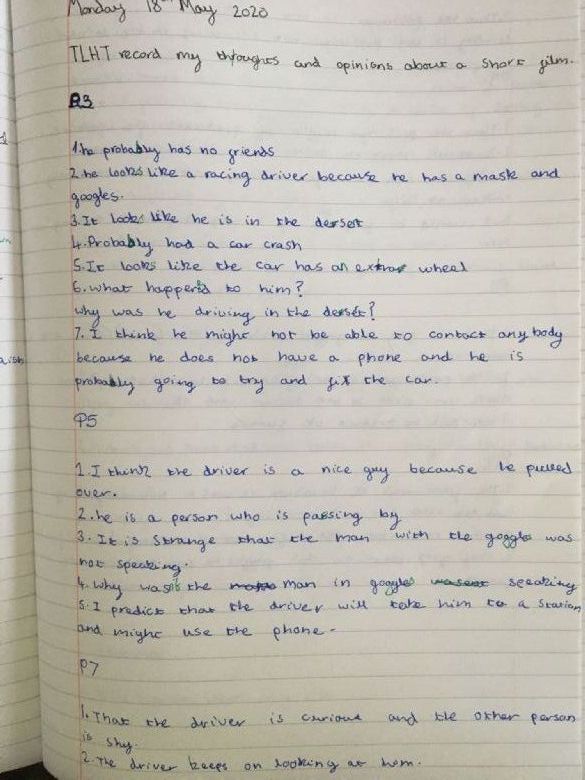 Monday 18th May 2020
TLHT record my thoughts and opinions about a short film.
P3
1. he probably has no friends
2. he looks like a racing driver because he has a mask and
googles.
3. It looks like he is in the dersert
4. Probably had a car crash
5. It looks like the car has an extra wheel
6. what happend to him?
why was he driving in the desert?
7. I think he might not be able to contact anybody
because he does not have a phone and he is
probably going to try and fix the car.
P5
1. I think the driver is a nice guy because he pulled
over.
2. he is a person who is passing by
3. It is strange that the man with the goggles was
not speaking.
4. Why was the man in googles speaking
5. I predict that the driver will take him to a station
and might use the phone.
P7
1. That the driver is curious and the other person
is shy.
2. The driver keeps on looking at him.